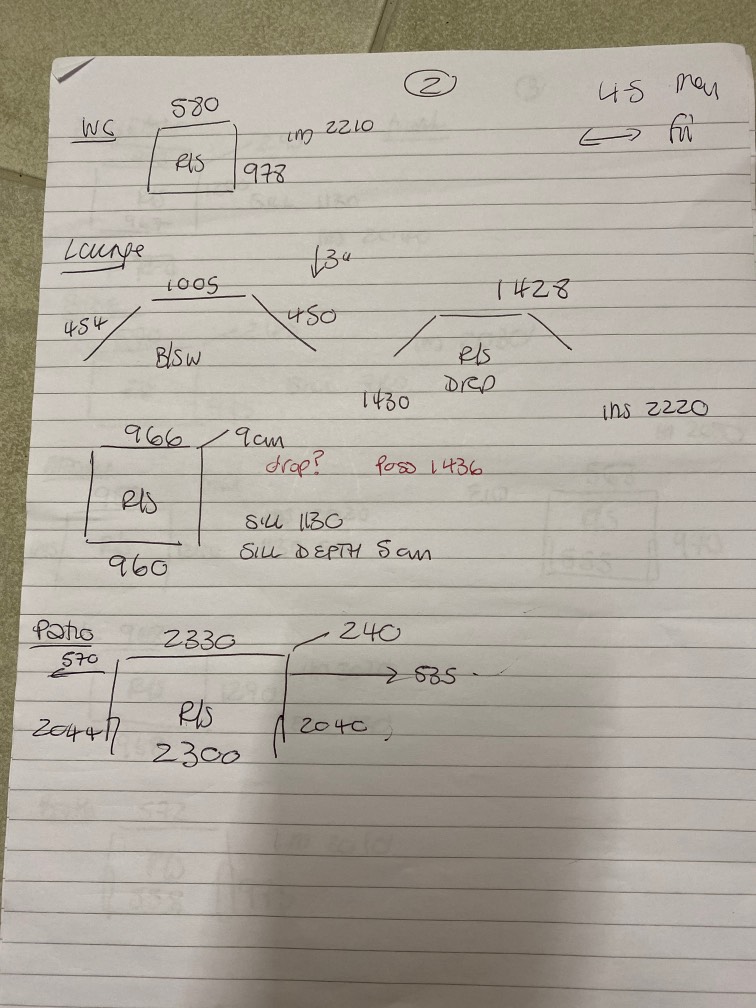 2
WC
580
R/S
978
2210
45
Lounge
1005
454
450
B/SW
1428
R/S
DROP
1430
ins 2220
966
9cm
drop? Poss 1436
R/S
Sill 1130
SILL DEPTH 5cm
960
Patio
570
2330
240
535
R/S
2044
2300
2040